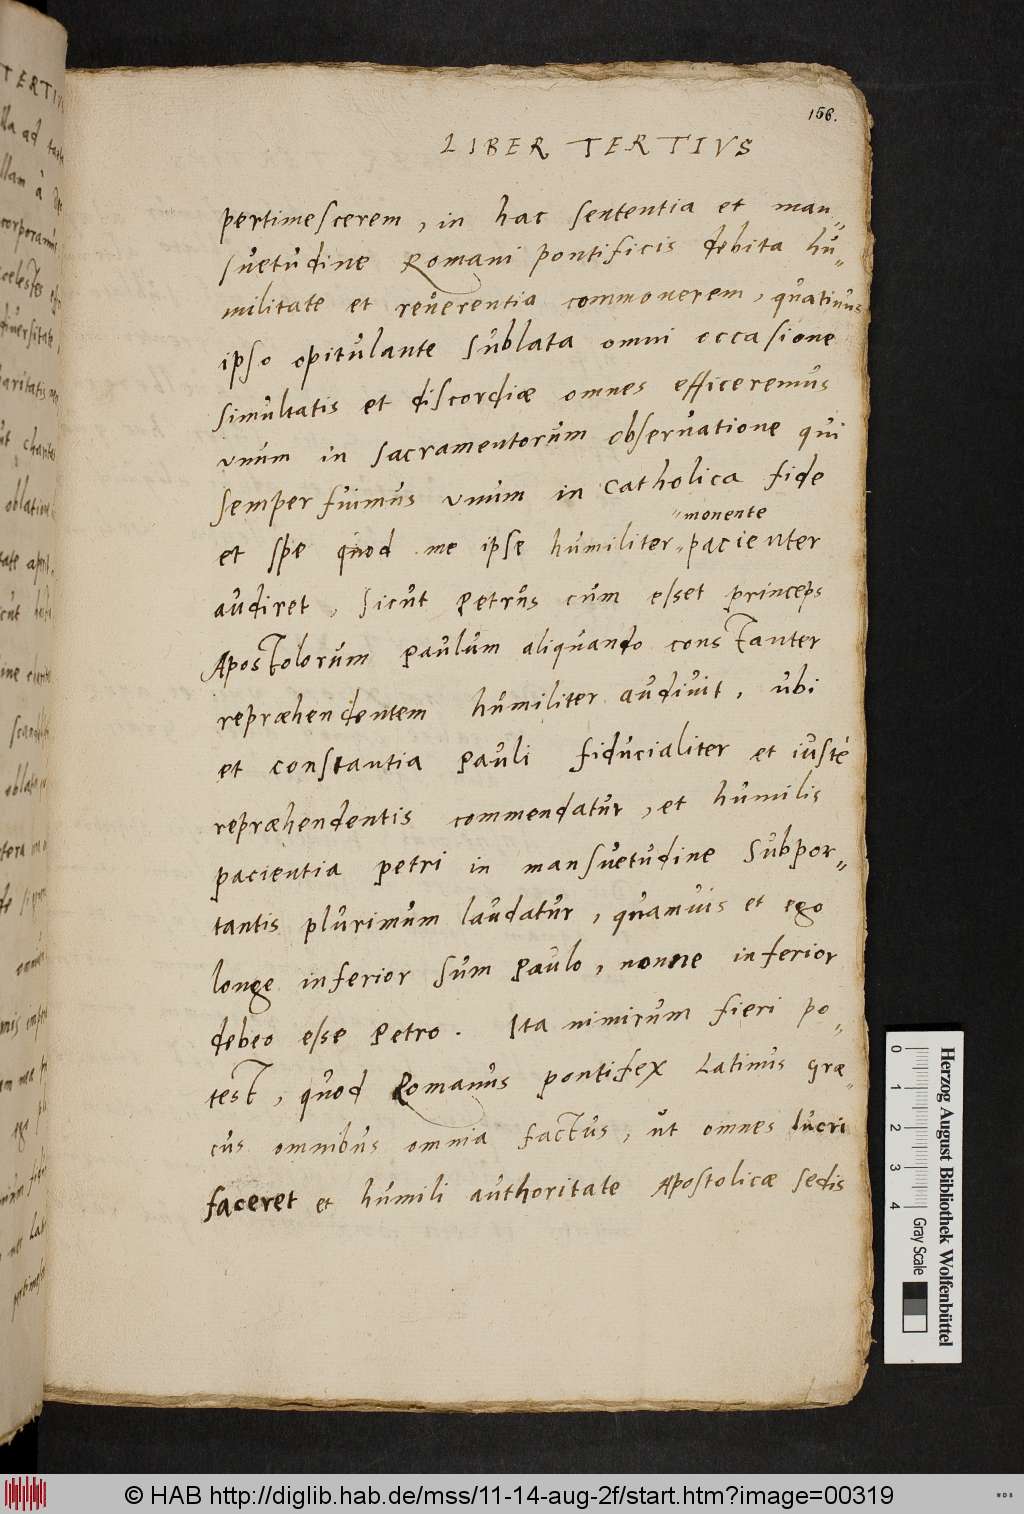 156.
LIBER TERTIVS
pertimescerem, in hac sententia et man„
suetudine Romani pontificis debita hu„
militate et reuerentia commonerem, quatinus
ipso opitulante sublata omni occasione
simultatis et discordiæ omnes efficeremus
vnum in sacramentorum obseruatione qui
semper fuimus vnum in catholica fide
„monente
et spe quod me ipse humiliter„pacienter
audiret, sicut Petrus cum esset princeps
Apostolorum Paulum aliquando constanter
repræhendentem humiliter audiuit, ubi
et constantia Pauli fiducialiter et iustè
repræhendentis commendatur, et humilis
pacientia petri in mansuetudine subpor„
tantis plurimum laudatur, quamuis et ego
longe inferior sum Paulo, nonne inferior
debeo esse Petro. Ita nimirum fieri po„
test, quod Romanus pontifex Latinus græ„
cus omnibus omnia factus, ut omnes lucri
faceret et humili authoritate Apostolicæ sedis
TERTIVS
lla ad
llam à
corporamus
coelestes
diuersitate
haritatis
ut charitas
oblatione
cut
oblata
ego
Herzog August Bibliothek Wolfenbüttel
0 1 2 3 4
Gray Scale
© HAB http://diglib.hab.de/mss/11-14-aug-2f/start.htm?image=00319